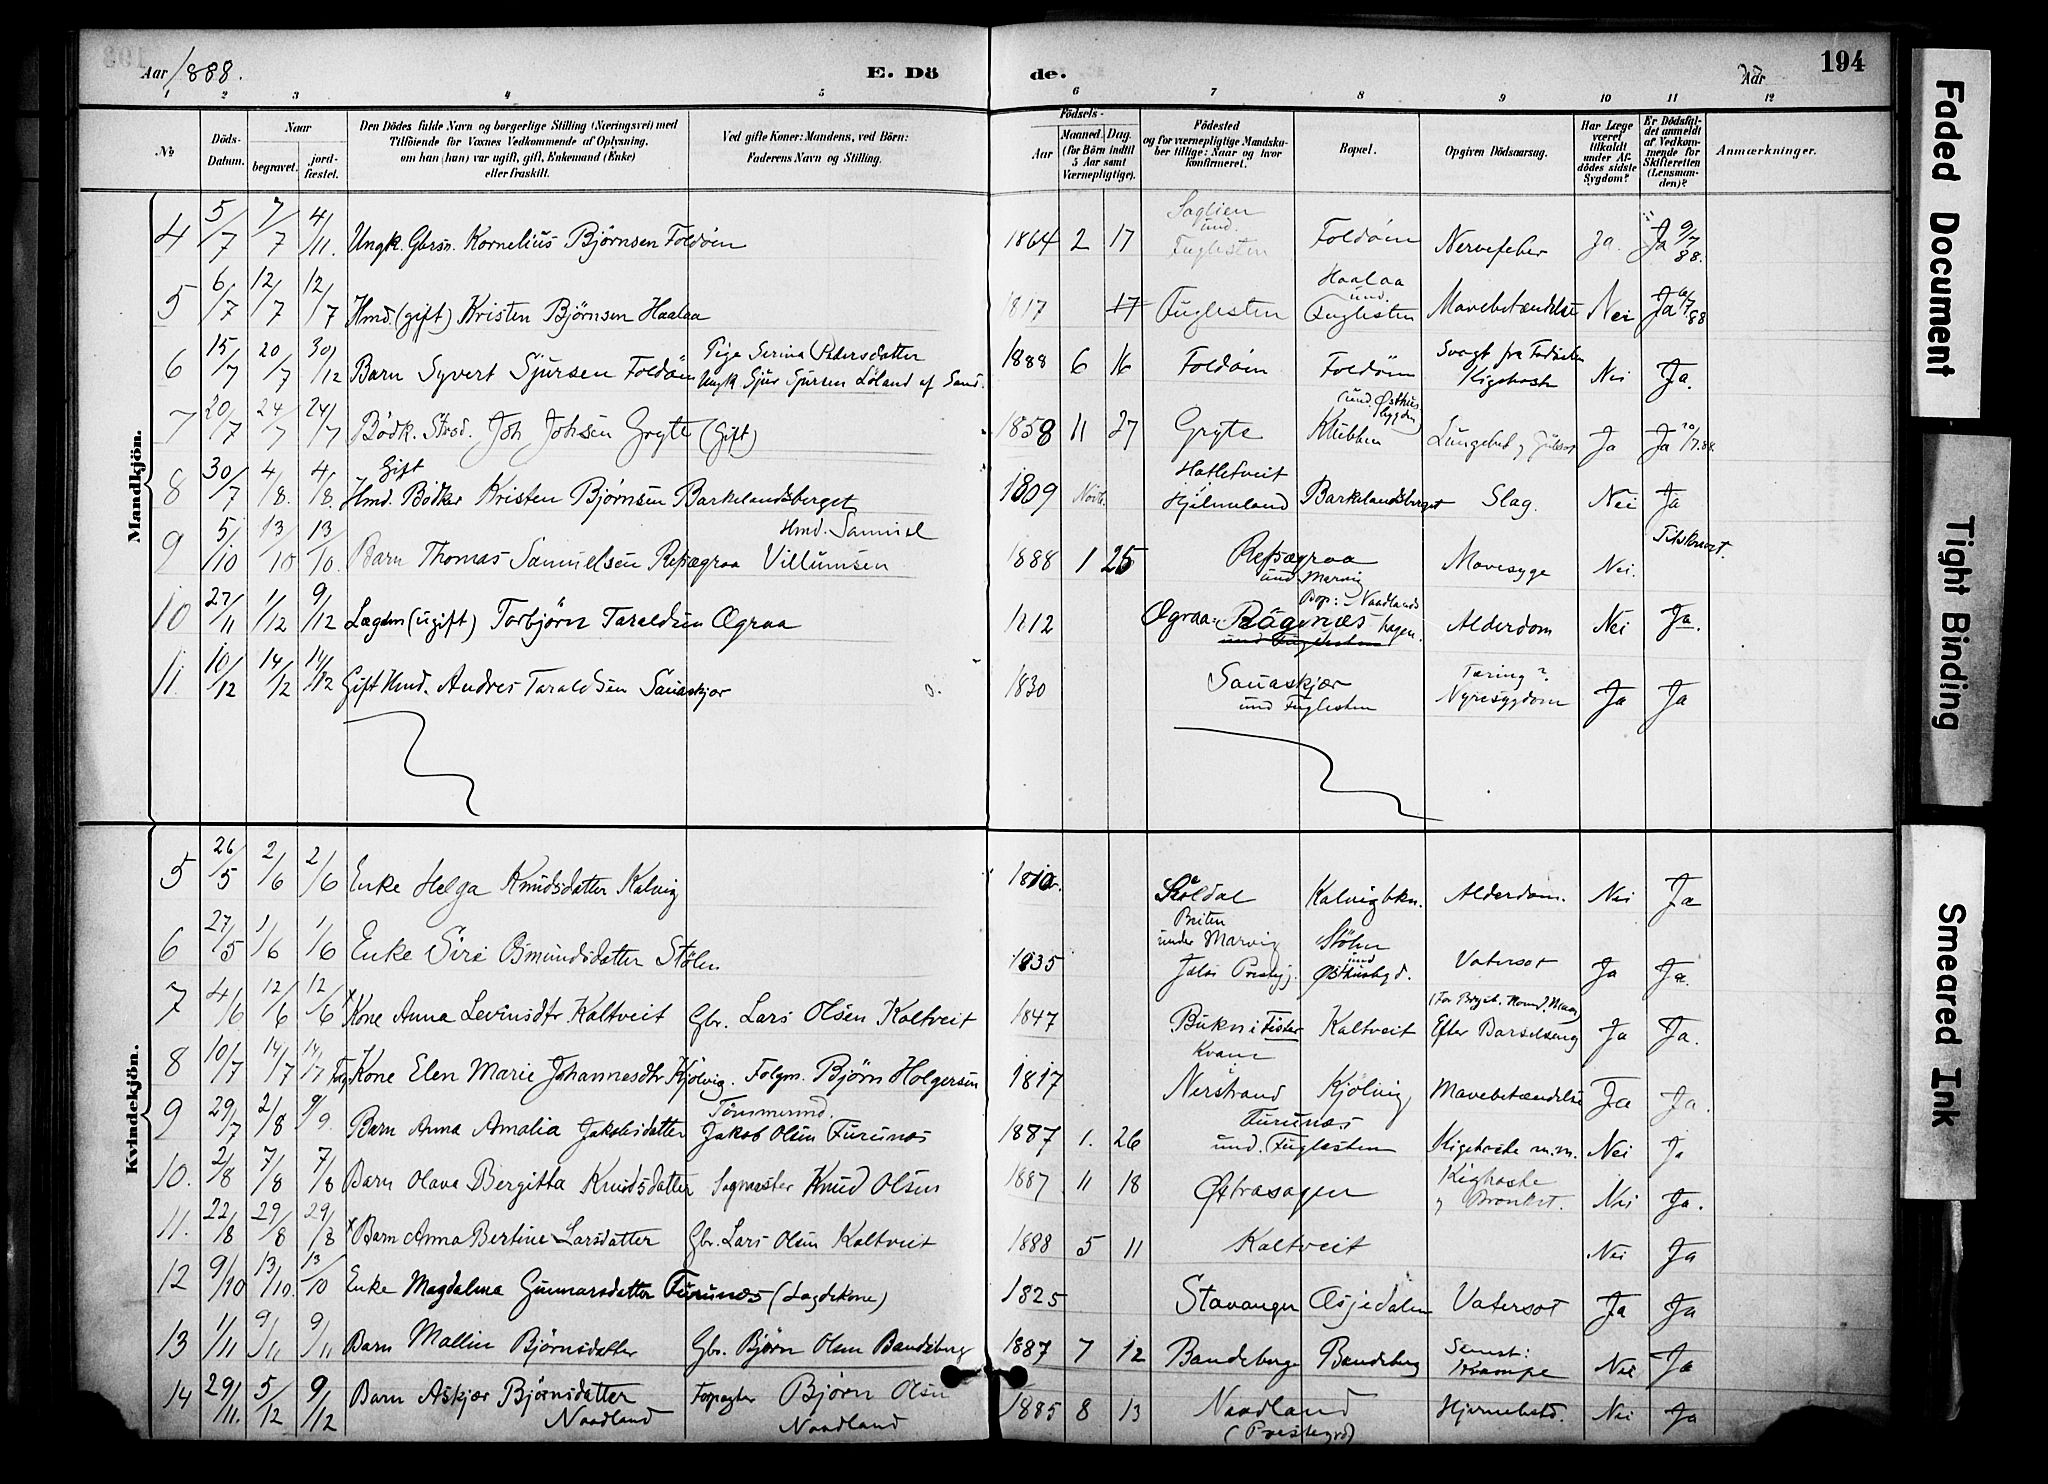 Aar 1888.
E. Dö
de.
Aar
194
1 2 3 4 5 6 7 8 9 10 11 12
No
Döds-Datum.
Naar
begravet.
jord-fæstet.
Den Dödes fulde Navn og borgerlige Stilling (Næringsvei) med
Tilföiende for Voxnes Vedkommende af Oplysning,
om han (hun) var ugift, gift, Enkemand (Enke)
eller fraskilt.
Ved gifte Koner: Mandens, ved Börn:
Faderens Navn og Stilling.
Födsels-
Aar
Maaned. Dag.
(for Börn indtil
5 Aar samt
Værnepligtige).
Födested
og for værnepligtige Mandska-
ber tillige: Naar og hvor
konfirmeret.
Bopæl.
Opgiven Dödsaarsag.
Har Læge
været
tilkaldt
under Af-
dödes sidste
Sygdom?
Er Dödsfal-
det anmeldt
af Vedkom-
mende for
Skifteretten
(Lensman-
den)?
Anmærkninger.
Mandkjön.
4 5/7 7/7 4/11. Ungk. Gbrsn. Kornelius Bjørnsen Foldøen 1864 2 17 Saglien und. Fuglesten Foldøen Nervefeber Ja. Ja 9/7 88.
5 6/7 12/7 12/7 Hmd. (gift) Kristen Bjørnsen Haalaa 1817 17 Fuglesten Haalaa und. Fuglesten Mavebetændelse Nei Ja 88
6 15/7 20/7 30/12 Barn Syvert Sjursen Foldøen Pige Serina Pedersdatter
Ungk. Sjur Sjursen Løland af Sand. 1888 6 16 Foldøen Foldøen Svagt fra Fødselen Kighoste Nei Ja.
7 20/7 24/7 24/7 Bødk. Strad. Joh Johsen Gryte (Gift) 1858 11 27 Gryte Klubben (und. Østhusbygden) Ja Ja 20/7.88.
8 30/7 4/8. 4/8. Gift
Hmd. Bødker Kristen Bjørnsen Barkelandsberget 1809 Hatletveit Hjelmeland Barkelandsberget Slag. Nei Ja
9 5/10 13/10 13/10. Barn Thomas Samuelsen Repægraa Hmd. Samuel Villumsen 1888 1 25 Repægraa und Marvig Mavesyge Nei.
10 27/11 1/12 9/12 Lægdm (ugift) Torbjørn Taraldsen Øgraa 1812 Øgraa: Rägenæs Bop: Naadlandshagen. Alderdom Nei Ja.
11. 10/12 14/12 14/12 Gift Hmd. Andres Taraldsen Sauaskjær 1830 Sauaskjær
und Fuglesten Tæring? Nyresygdom Ja Ja
Kvindekjön.
5 26/5 2/6 2/6 Enke Helga Knudsdatter Kalvig 1810. Kalvigbkn. Alderdom. Nei Ja
6 27/5 1/6 1/6 Enke Siri Osmundsdatter Stølen 1835 Briten
under Marvig
Jelsi Prestgj. Stølen und Østhusbygd. Vatersot Ja Ja.
7 4/6 12/6 12/6 Kone Anna Levinsdtr Kaltveit Gbr. Lars Olsen Kaltveit 1847 Bukn i Fister Kaltveit Efter Barselseng Ja Ja.
8 10/7 14/7 14/7 Kone Elen Marie Johannesdtr Kjølvig. Folgm. Björn Holgersen 1817 Kvam
Nerstrand Kjölvig Mavebetændelse Ja Ja.
9 29/7 2/8 9/9. Barn Anna Amalia Jakobsdatter Tömmermd.
Jakob Olsen Furunæs 1887 1. 26 Furunæs
und. Fuglesten Kighoste m.m. Nei Ja
10. 2/8 7/8 7/8 Barn Olava Bergitta Knudsdatter Sagmester Knud Olsen 1887 11 18 Øftrasagen Kighoste
Bronkit. Nei Ja.
11. 22/8 29/8 29/8 Barn Anna Bertine Larsdatter Gbr. Lars Olsen Kaltveit 1888 5 11 Kaltveit Nei Ja
12 9/10 13/10. 13/10 Enke Magdalena Gunnarsdatter Furunæs (Lægdekone) 1825 Stavanger Øsjedalen Vatersot Ja Ja
13 1/11 9/11 9/11 Barn Mallin Bjørnsdatter Gbr. Bjørn Olsen Bandsberg 1887 7 12 Bandsberg Bandsberg Krampe Nei Ja
14 29/11. 5/12 9/12 Barn Askjær Bjørnsdatter
Naadland Forpagter Bjørn Olsen
Naadland 1885 8 13 Naadland
(Prestegrd) Hjernebetd. Nei Ja
Faded Document
Tight Binding
Smeared Ink